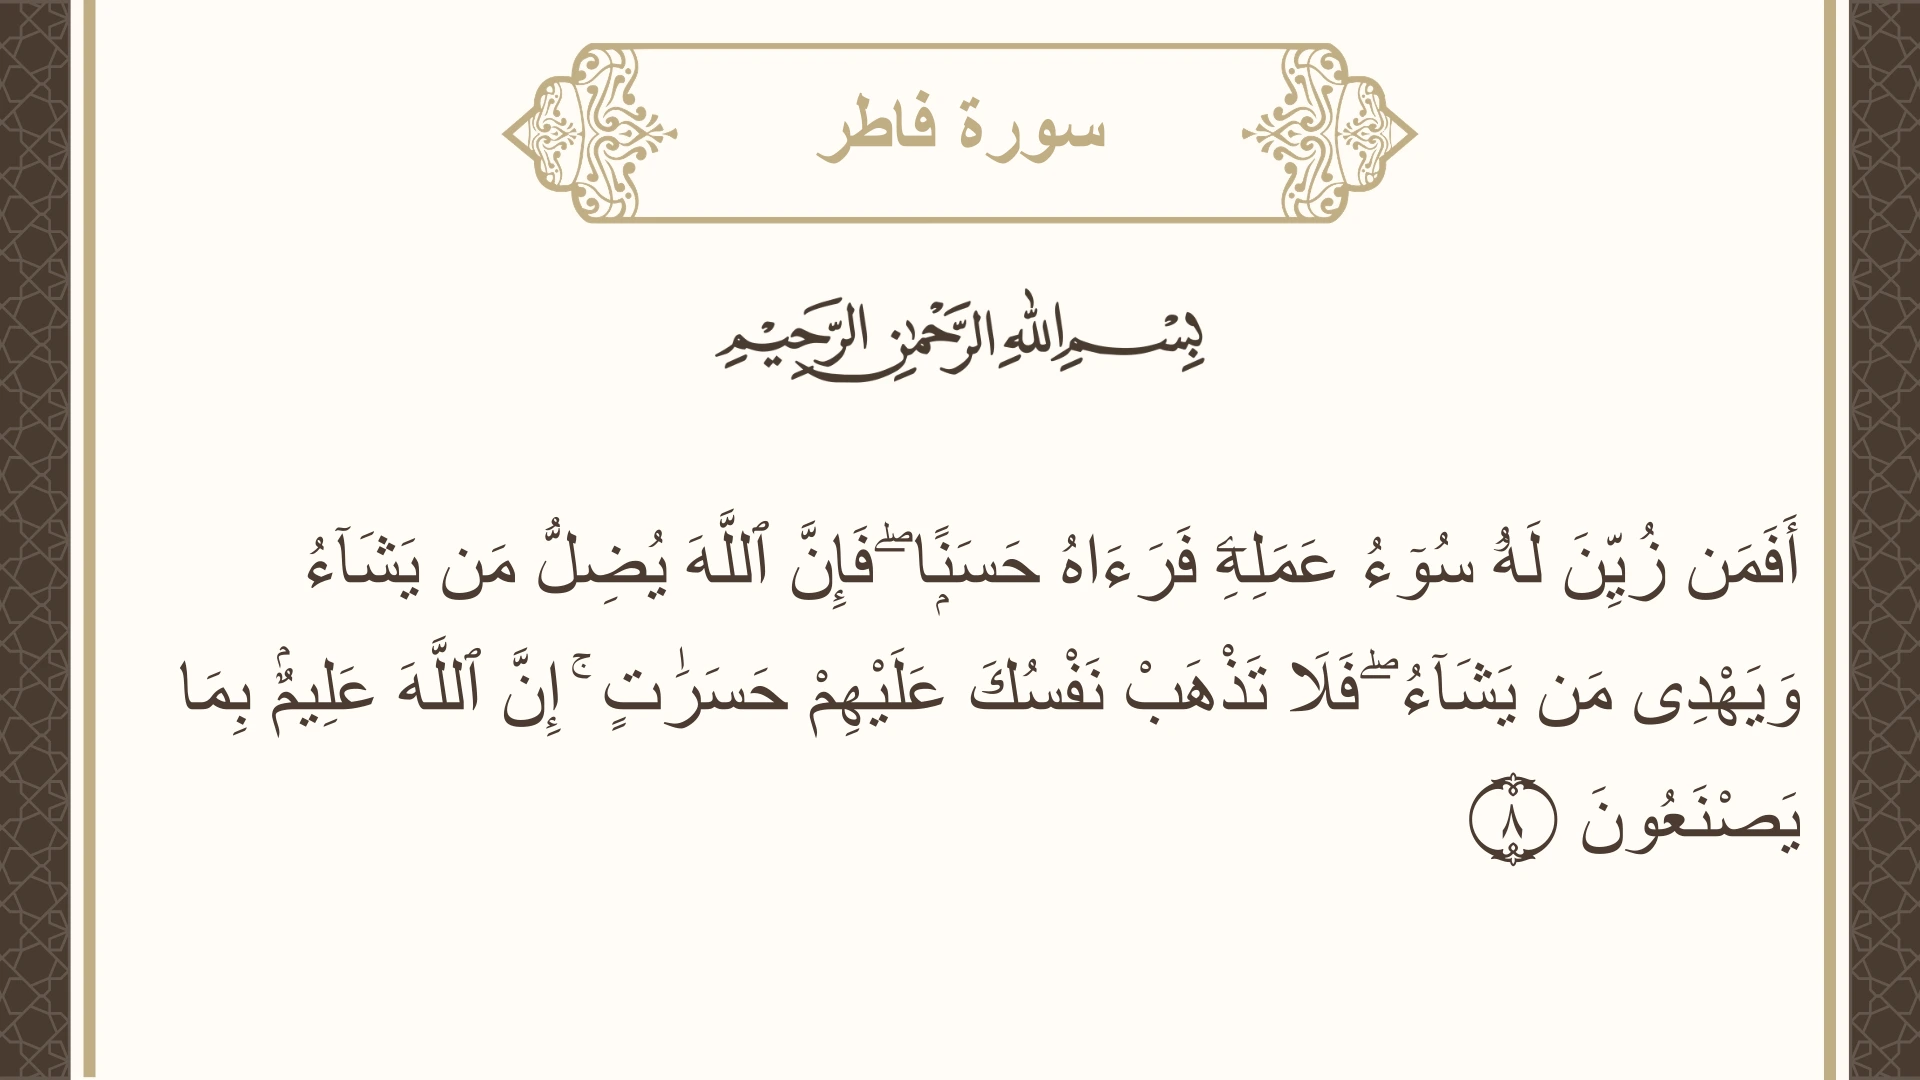 سورة فاطر
بِسْمِ اللهِ الرَّحْمٰنِ الرَّحِيْمِ
أَفَمَن زُيِّنَ لَهُۥ سُوٓءُ عَمَلِهِۦ فَرَءَاهُ حَسَنًۭا ۖ فَإِنَّ ٱللَّهَ يُضِلُّ مَن يَشَآءُ
وَيَهْدِى مَن يَشَآءُ ۖ فَلَا تَذْهَبْ نَفْسُكَ عَلَيْهِمْ حَسَرَٰتٍ ۚ إِنَّ ٱللَّهَ عَلِيمٌۢ بِمَا
يَصْنَعُونَ ٨